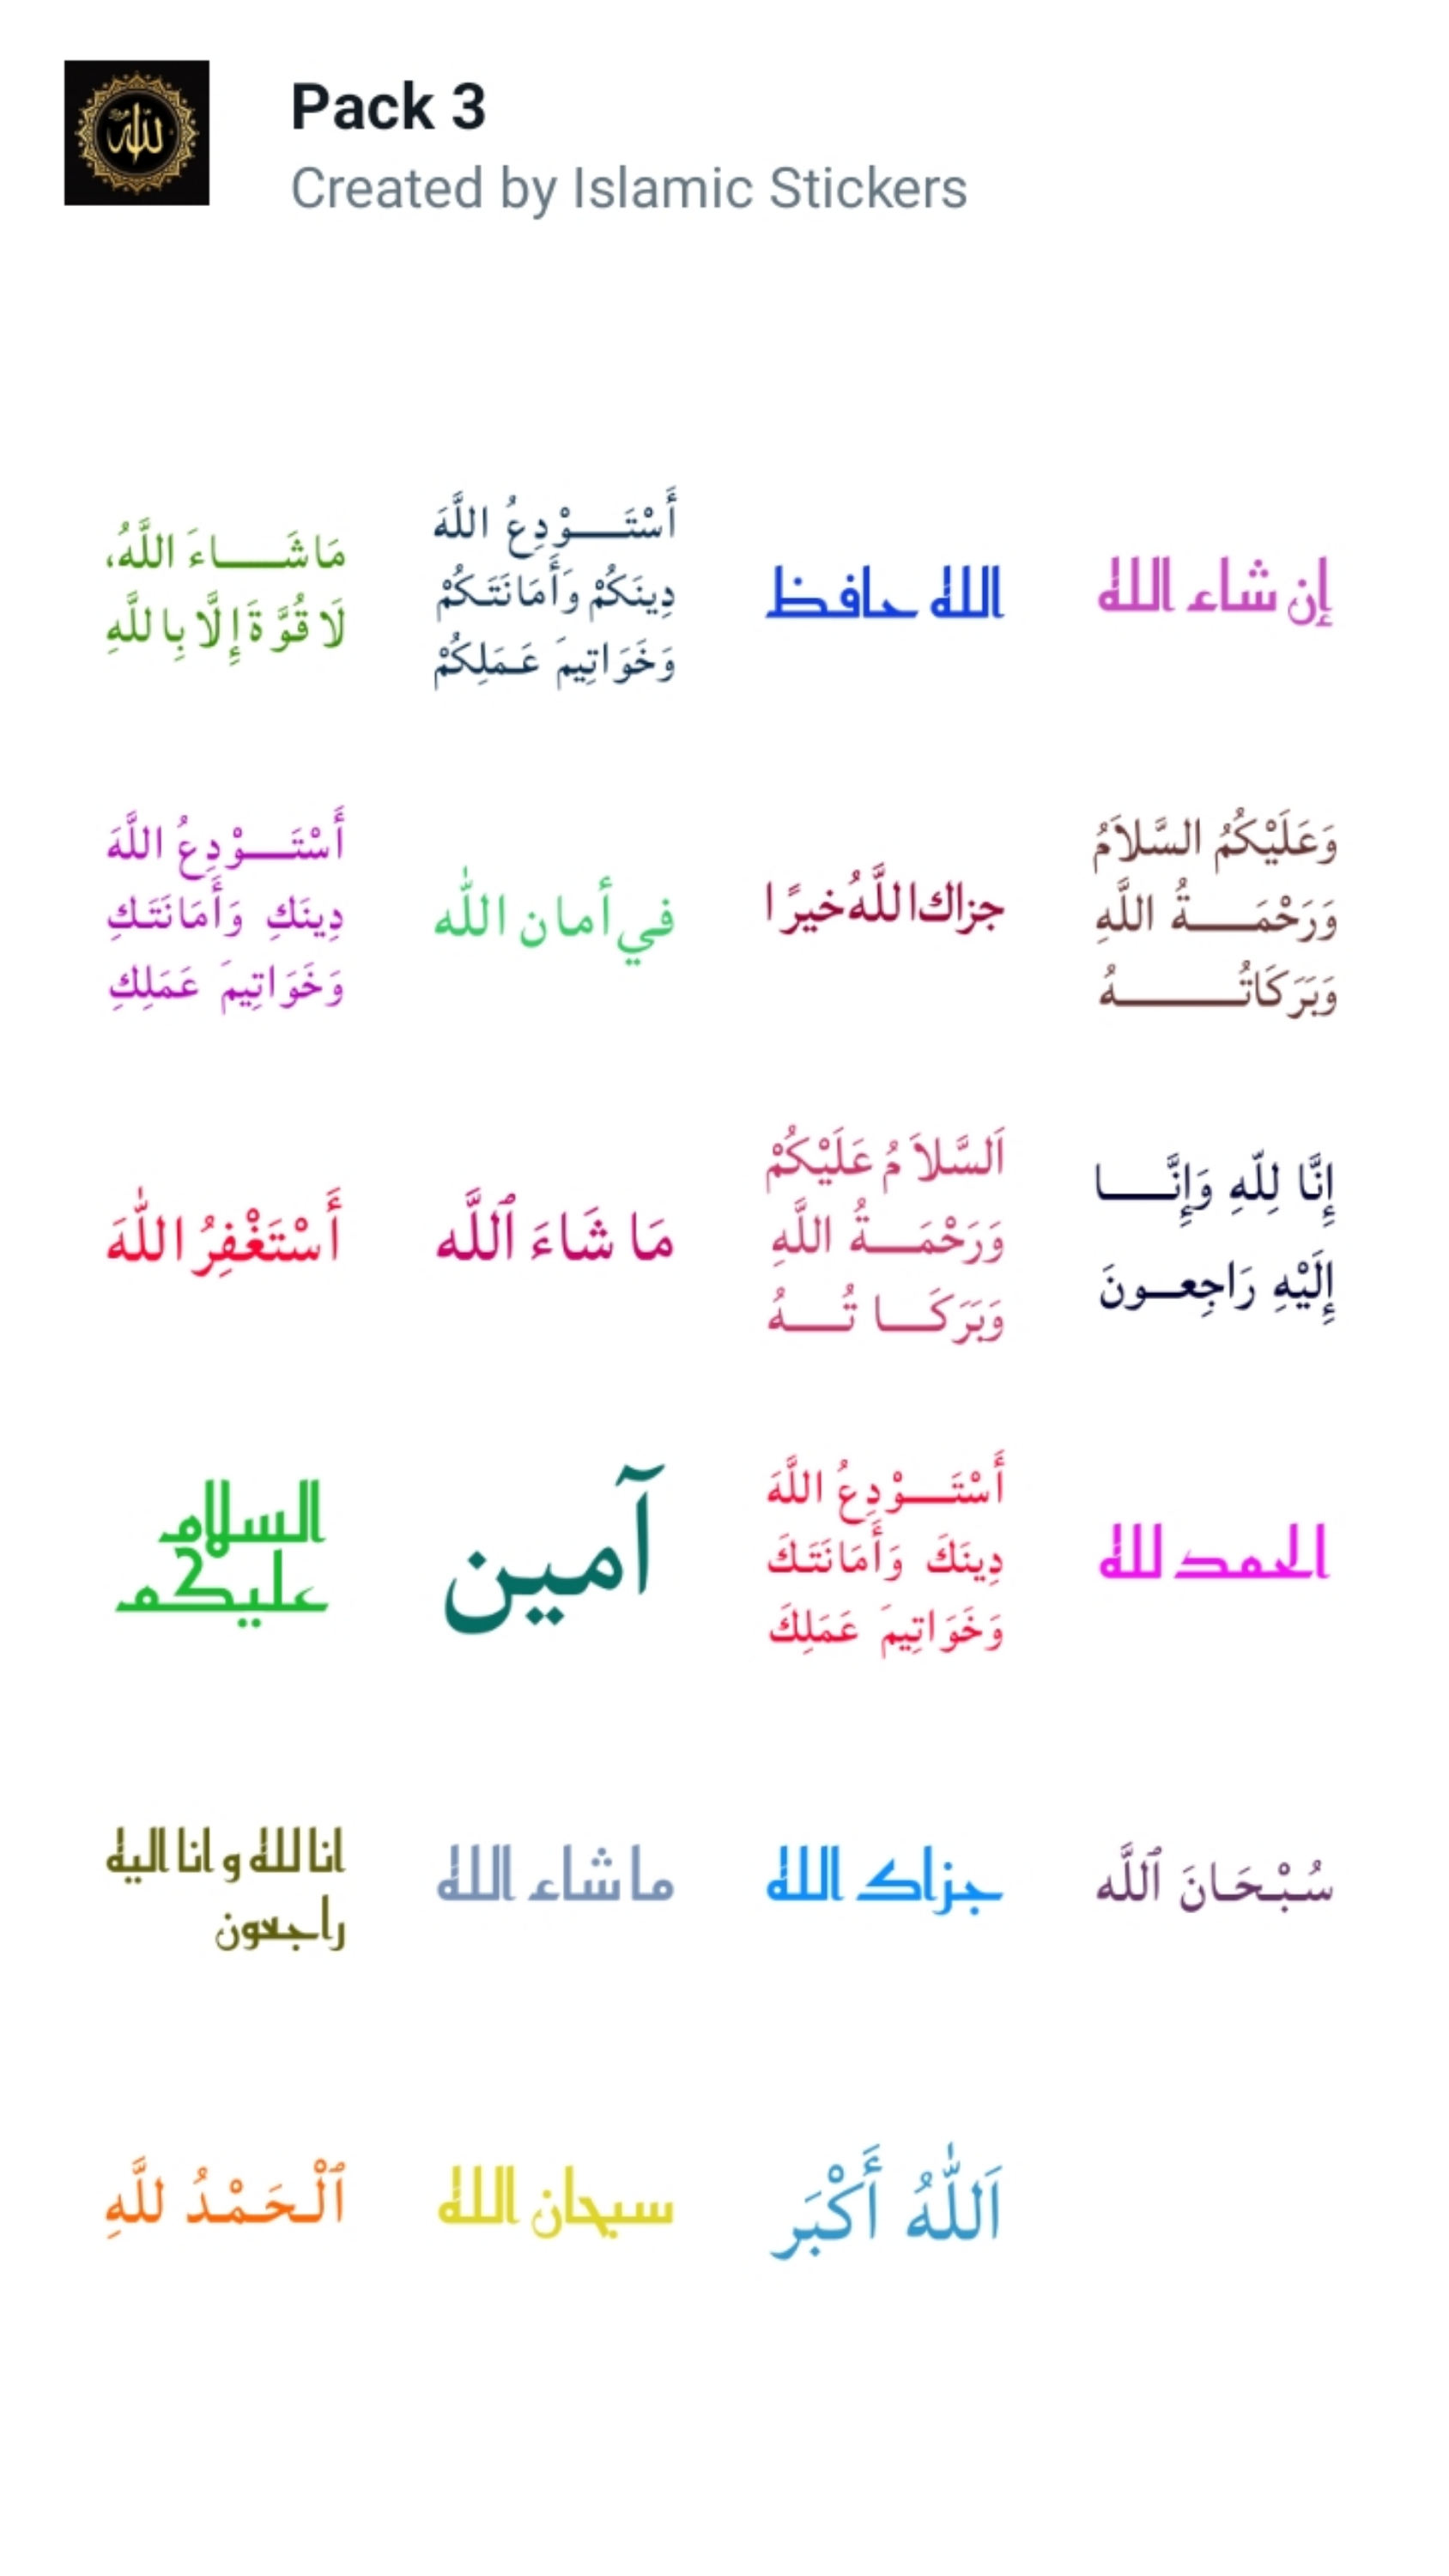 الله
Pack 3
Created by Islamic Stickers
مَا شَـــاءَ اللَّهُ،
لَا قُوَّةَ إِلَّا بِاللَّهِ
أَسْتَـــوْدِعُ اللَّهَ
دِينَكُمْ وَأَمَانَتَكُمْ
وَخَوَاتِيمَ عَمَلِكُمْ
الله حافظ
إن شاء الله
أَسْتَـــوْدِعُ اللَّهَ
دِينَكِ وَأَمَانَتَكِ
وَخَوَاتِيمَ عَمَلِكِ
في أمان اللّٰه
جزاك اللَّهُ خيرًا
وَعَلَيْكُمُ السَّلاَمُ
وَرَحْمَـــةُ اللَّهِ
وَبَرَكَاتُـــهُ
أَسْتَغْفِرُ اللّٰهَ
مَا شَاءَ ٱللَّٰه
اَلسَّلاَمُ عَلَيْكُمْ
وَرَحْمَـــةُ اللَّهِ
وَبَرَكَـــاتُـــهُ
إِنَّا لِلّهِ وَإِنَّـــا
إِلَيْهِ رَاجِعـونَ
السلام
عليكم
آمين
أَسْتَـــوْدِعُ اللَّهَ
دِينَكَ وَأَمَانَتَكَ
وَخَوَاتِيمَ عَمَلِكَ
الحمد لله
انا لله و انا اليه
راجعون
ماشاء الله
جزاك الله
سُبْحَانَ ٱللَّٰه
ٱلْحَمْدُ للَّهِ
سبحان الله
اَللّٰهُ أَكْبَر